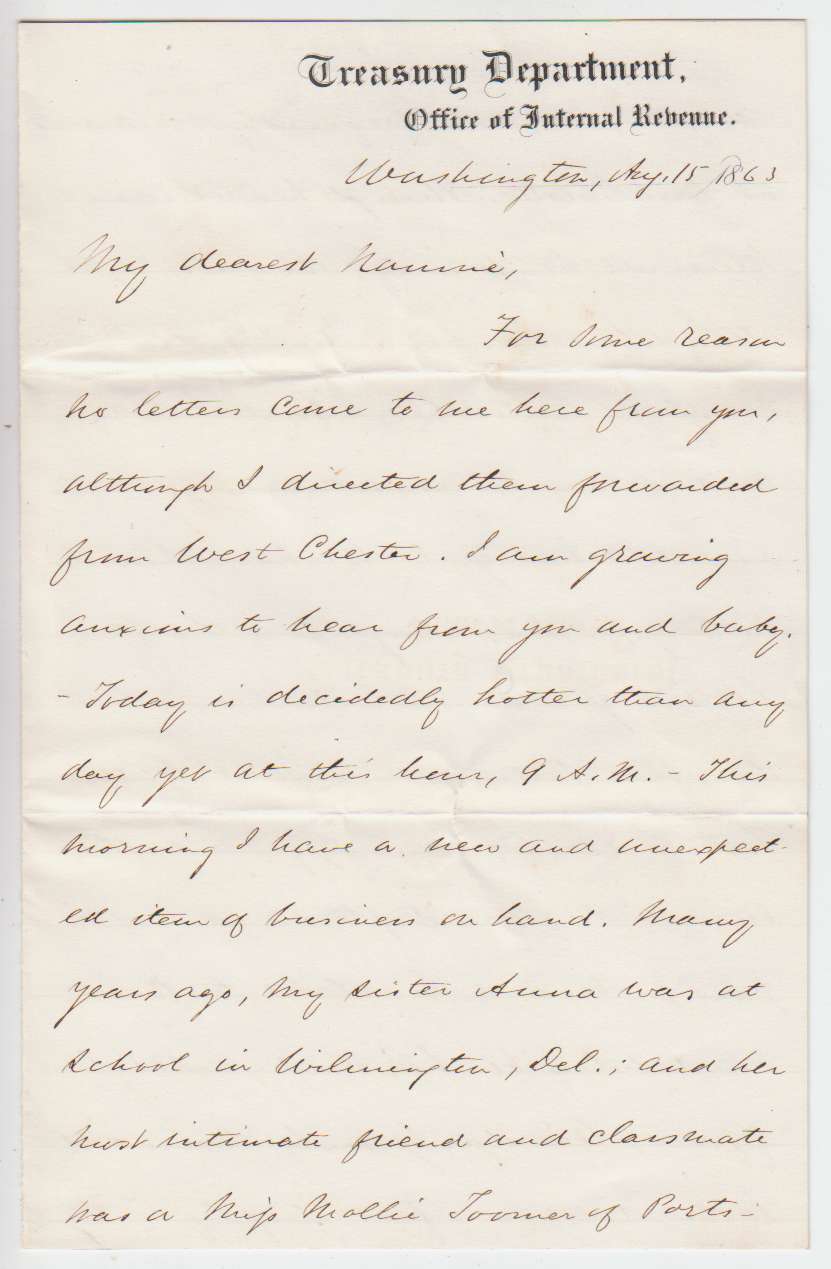 Treasury Department,
Office of Internal Revenue.
Washington, Aug. 15, 1863
My dearest Nannie,
For some reason
no letters come to me here from you,
although I directed them forwarded
from West Chester. I am growing
anxious to hear from you and baby.
- Today is decidedly hotter than any
day yet at this hour, 9 A.M. - This
morning I have a new and unexpect-
ed item of business on hand. Many
years ago, my sister Anna was at
school in Wilmington, Del.; and her
most intimate friend and classmate
was a Miss Mollie Toomer of Ports-